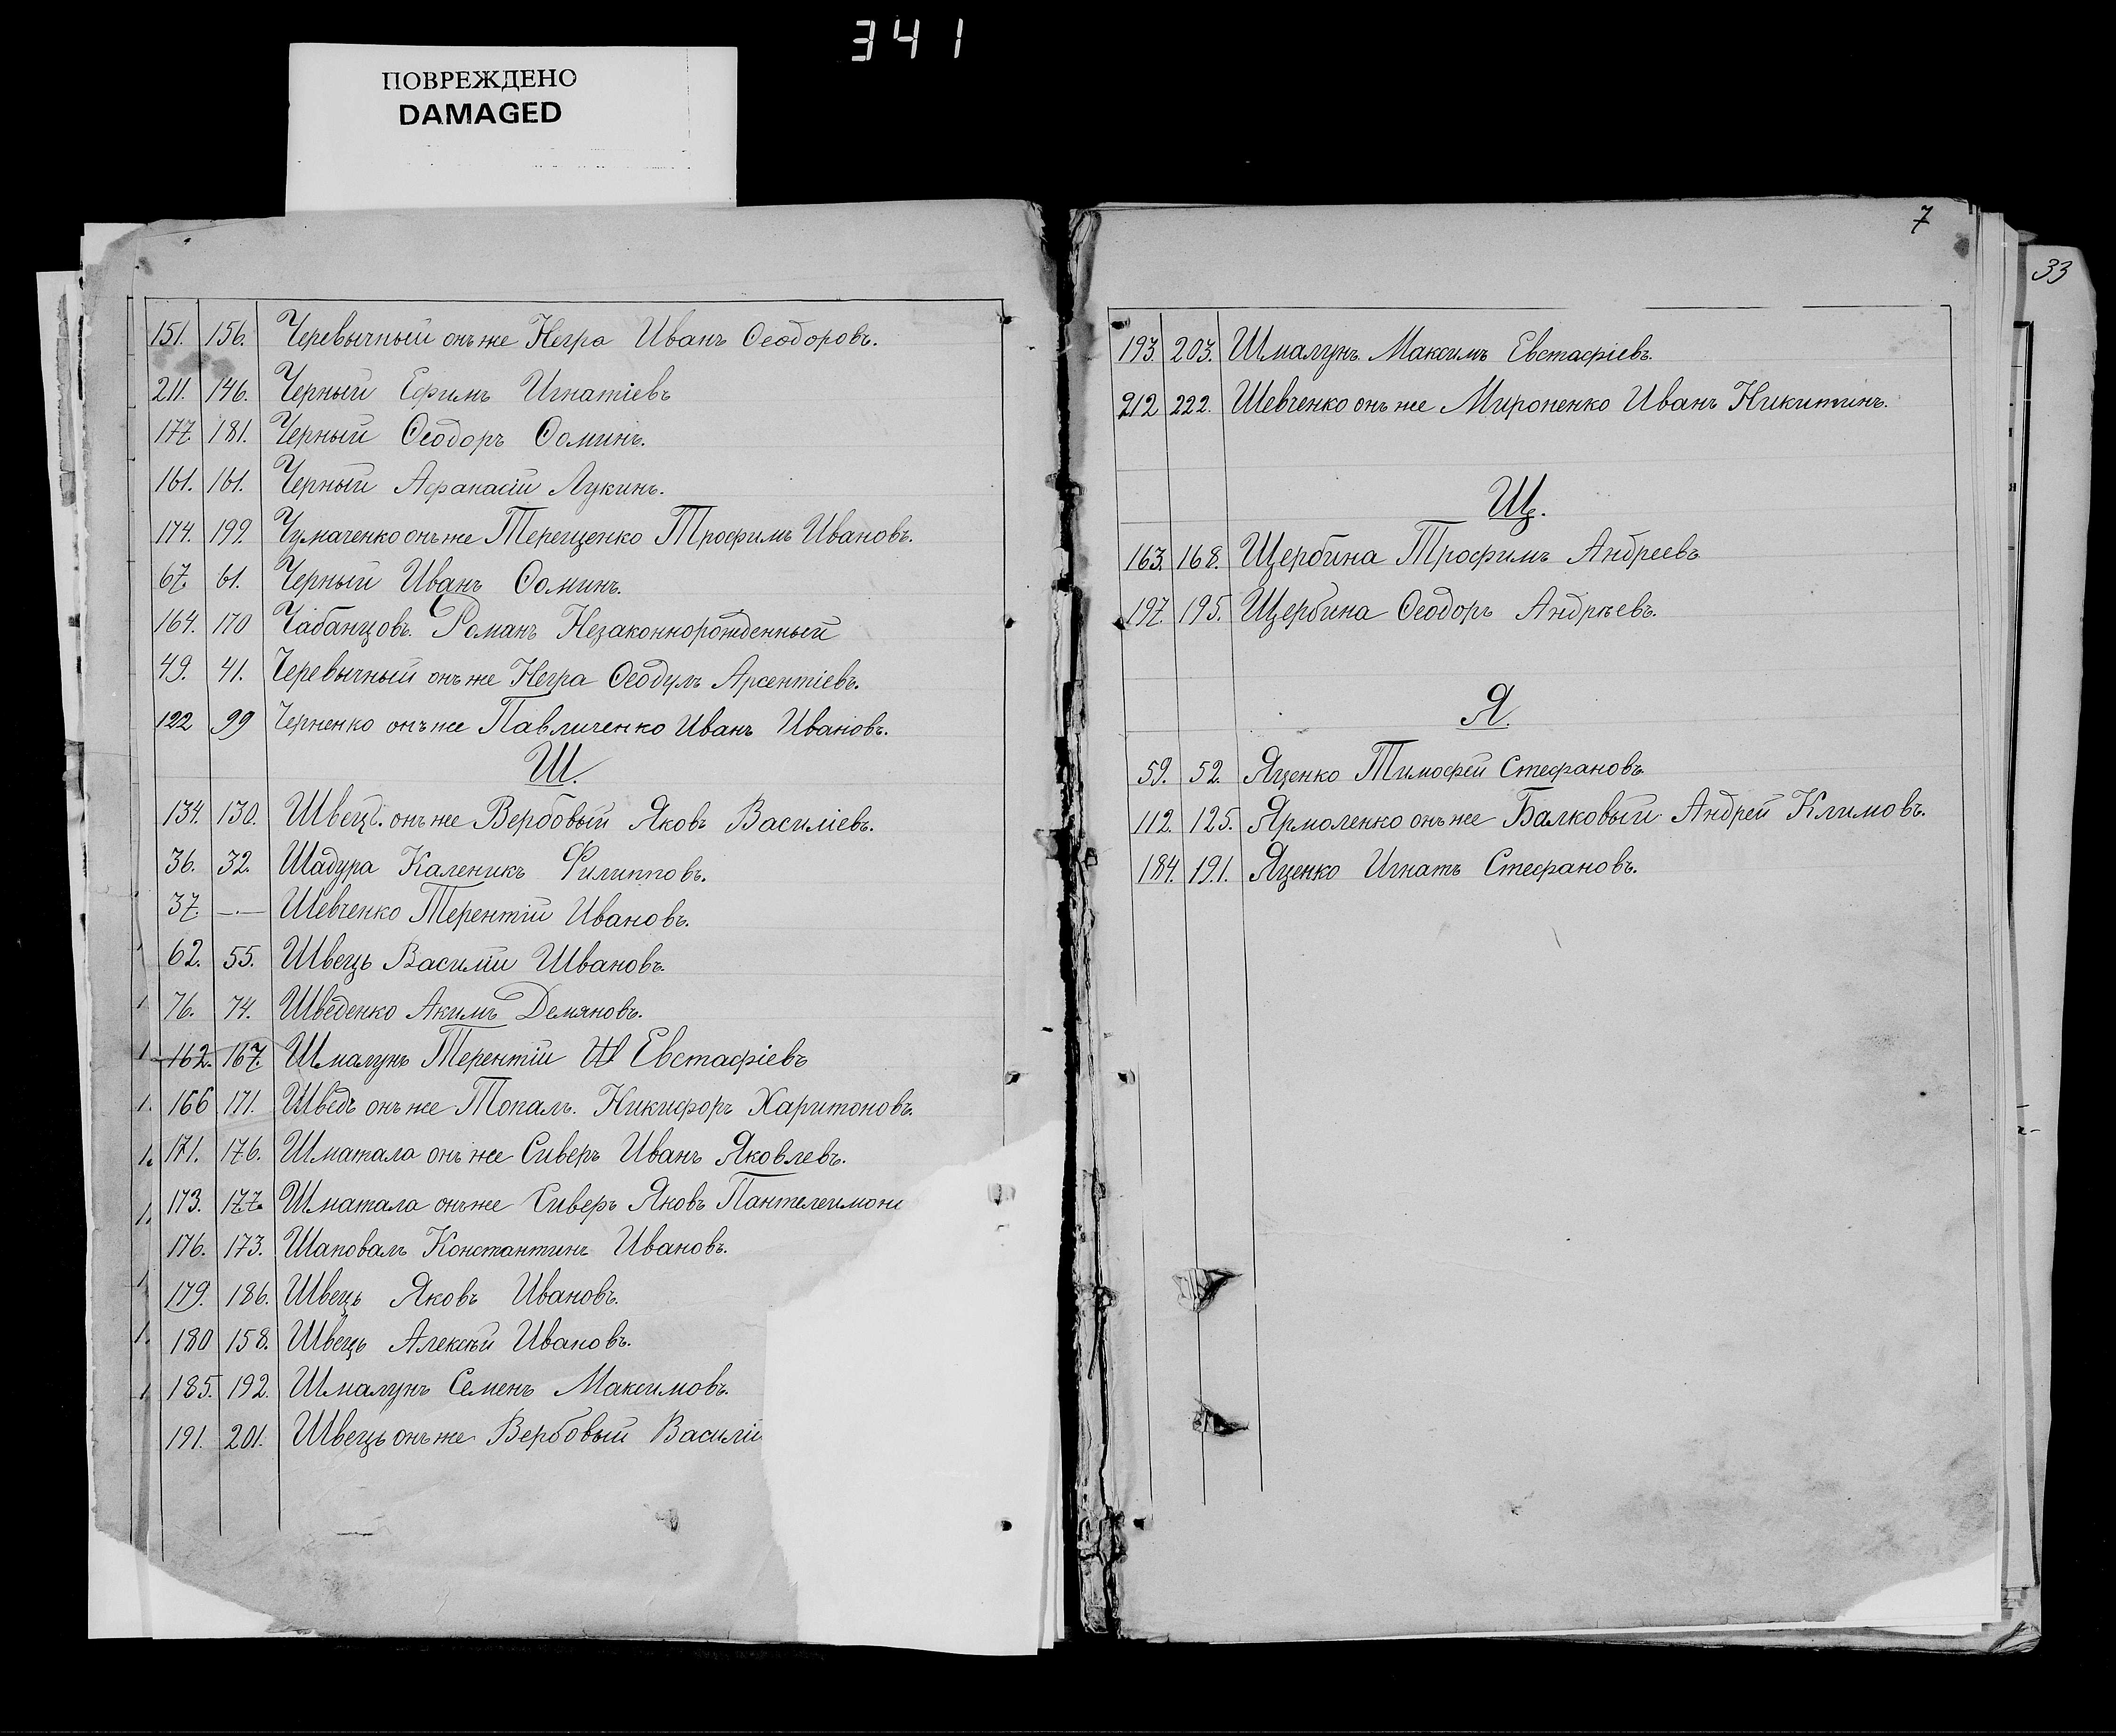 341
ПОВРЕЖДЕНО
DAMAGED
151. 156. Черевычный онъ же Негра Иванъ Ѳеодоровъ.
211. 146. Черный Ефимъ Игнатіевъ
177. 181. Черный Ѳеодоръ Ѳоминъ.
161. 161. Черный Афанасій Лукинъ.
174. 199. Чумаченко онъ же Терещенко Трофимъ Ивановъ.
67. 61. Черный Иванъ Ѳоминъ.
164. 170 Чабанцовъ. Романъ Незаконнорожденный
49. 41. Черевычный онъ же Негра Ѳеодулъ Арсентіевъ.
122 99 Черненко онъ же Павличенко Иванъ Ивановъ.
Ш.
134. 130. Швецъ. онъ же Вербовый Яковъ Василіевъ.
36. 32. Шадура Каленикъ Филипповъ.
37. —.— Шевченко Терентій Ивановъ.
62. 55. Швець Василій Ивановъ.
76. 74. Шведенко Акимъ Демяновъ.
1. 162. 167. Шмалунъ Терентій Евстафіевъ
1. 166 171. Шведъ онъ же Топалъ. Никифоръ Харитоновъ.
1. 171. 176. Шматала онъ же Сиверъ Иванъ Яковлевъ.
1. 173. 177. Шматала онъ же Сиверъ Яковъ Пантелеимон
176. 173. Шаповалъ Константинъ Ивановъ.
179. 186. Швець Яковъ Ивановъ.
1. 180 158. Швець Алексѣй Ивановъ.
1. 185. 192. Шмалунъ Семенъ Максимовъ.
191. 201. Швець онъ же Вербовый Василій
7
33
193. 203. Шмалунъ Максимъ Евстафіевъ.
212 222. Шевченко онъ же Мироненко Иванъ Никитинъ.
Щ.
163. 168. Щербина Трофимъ Андреевъ
197. 195. Щербина Ѳеодоръ Андрѣевъ.
Я.
59. 52. Яценко Тимофей Стефановъ
112. 125. Ярмоленко онъ же Балковый Андрей Климовъ.
184. 191. Яценко Игнатъ Стефановъ.